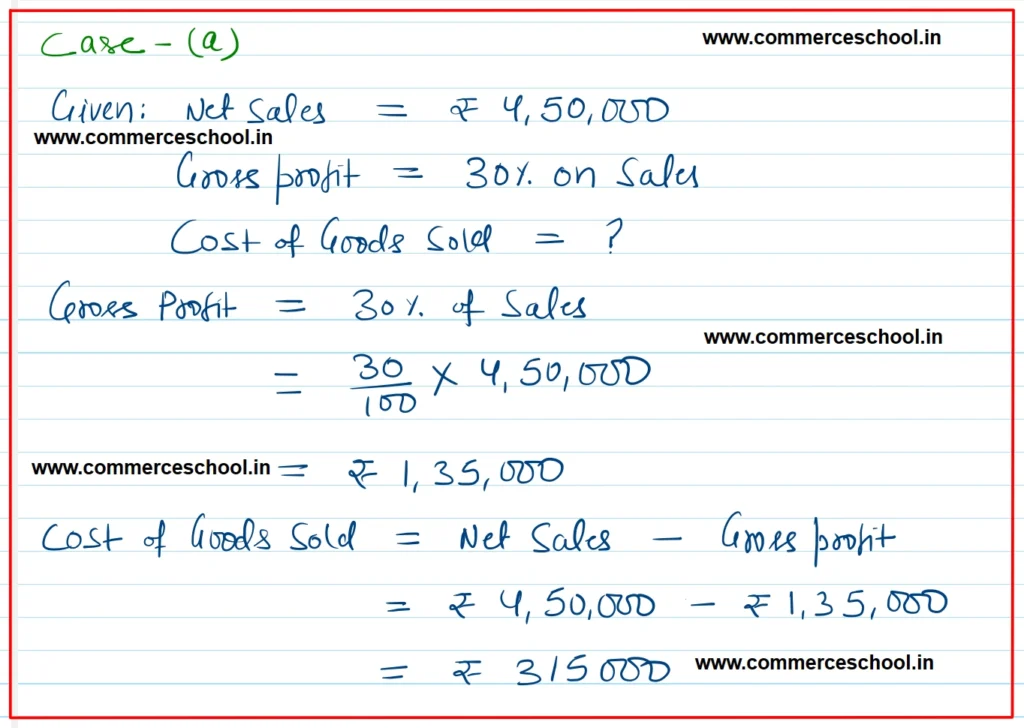 Case - (a)
www.commerceschool.in
Given: Net Sales = ₹ 4,50,000
www.commerceschool.in
Gross profit = 30% on Sales
Cost of Goods Sold = ?
Gross Profit = 30% of Sales
www.commerceschool.in
= 30/100 × 4,50,000
www.commerceschool.in = ₹ 1,35,000
Cost of Goods Sold = Net Sales - Gross profit
= ₹ 4,50,000 - ₹ 1,35,000
= ₹ 315000 www.commerceschool.in